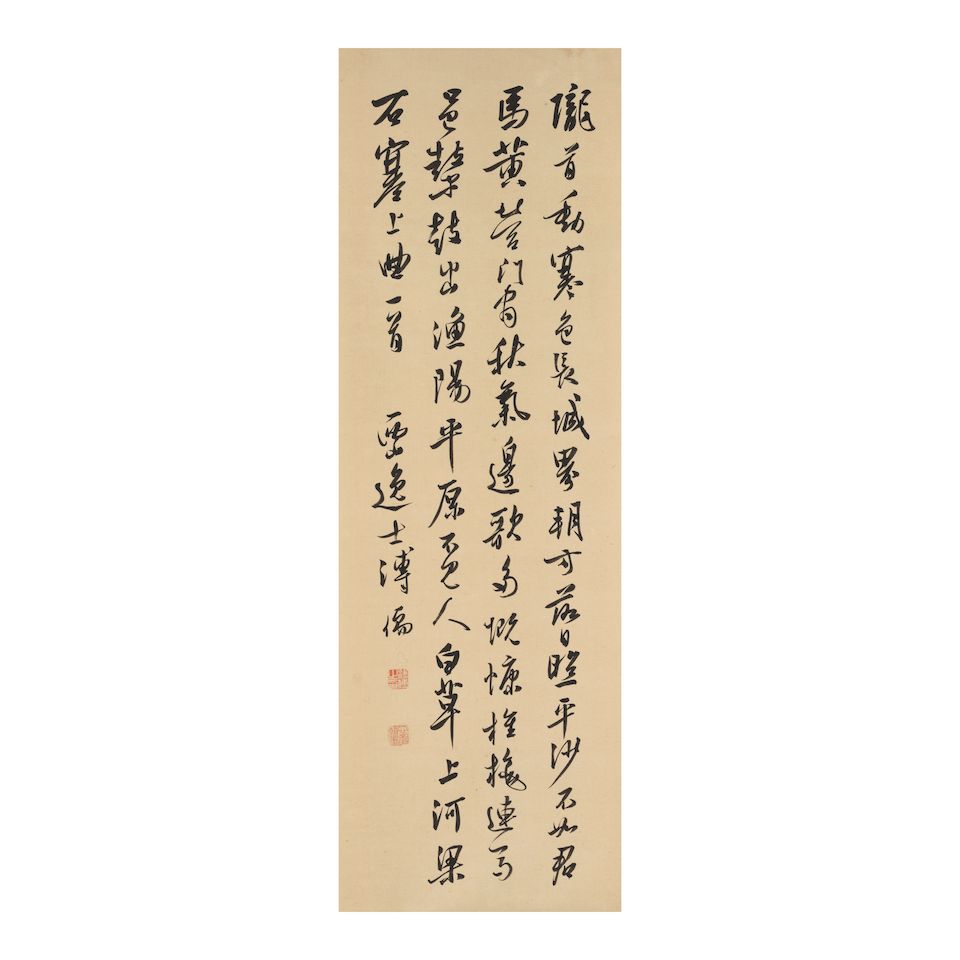 隴首動寒色長城界朔方落日照平沙不如君
馬黃營門肅秋氣邊歌多慨慷旌旗連馬
邑鼙鼓出漁陽平原不見人白草上河梁
右塞上曲一首 西山逸士溥儒